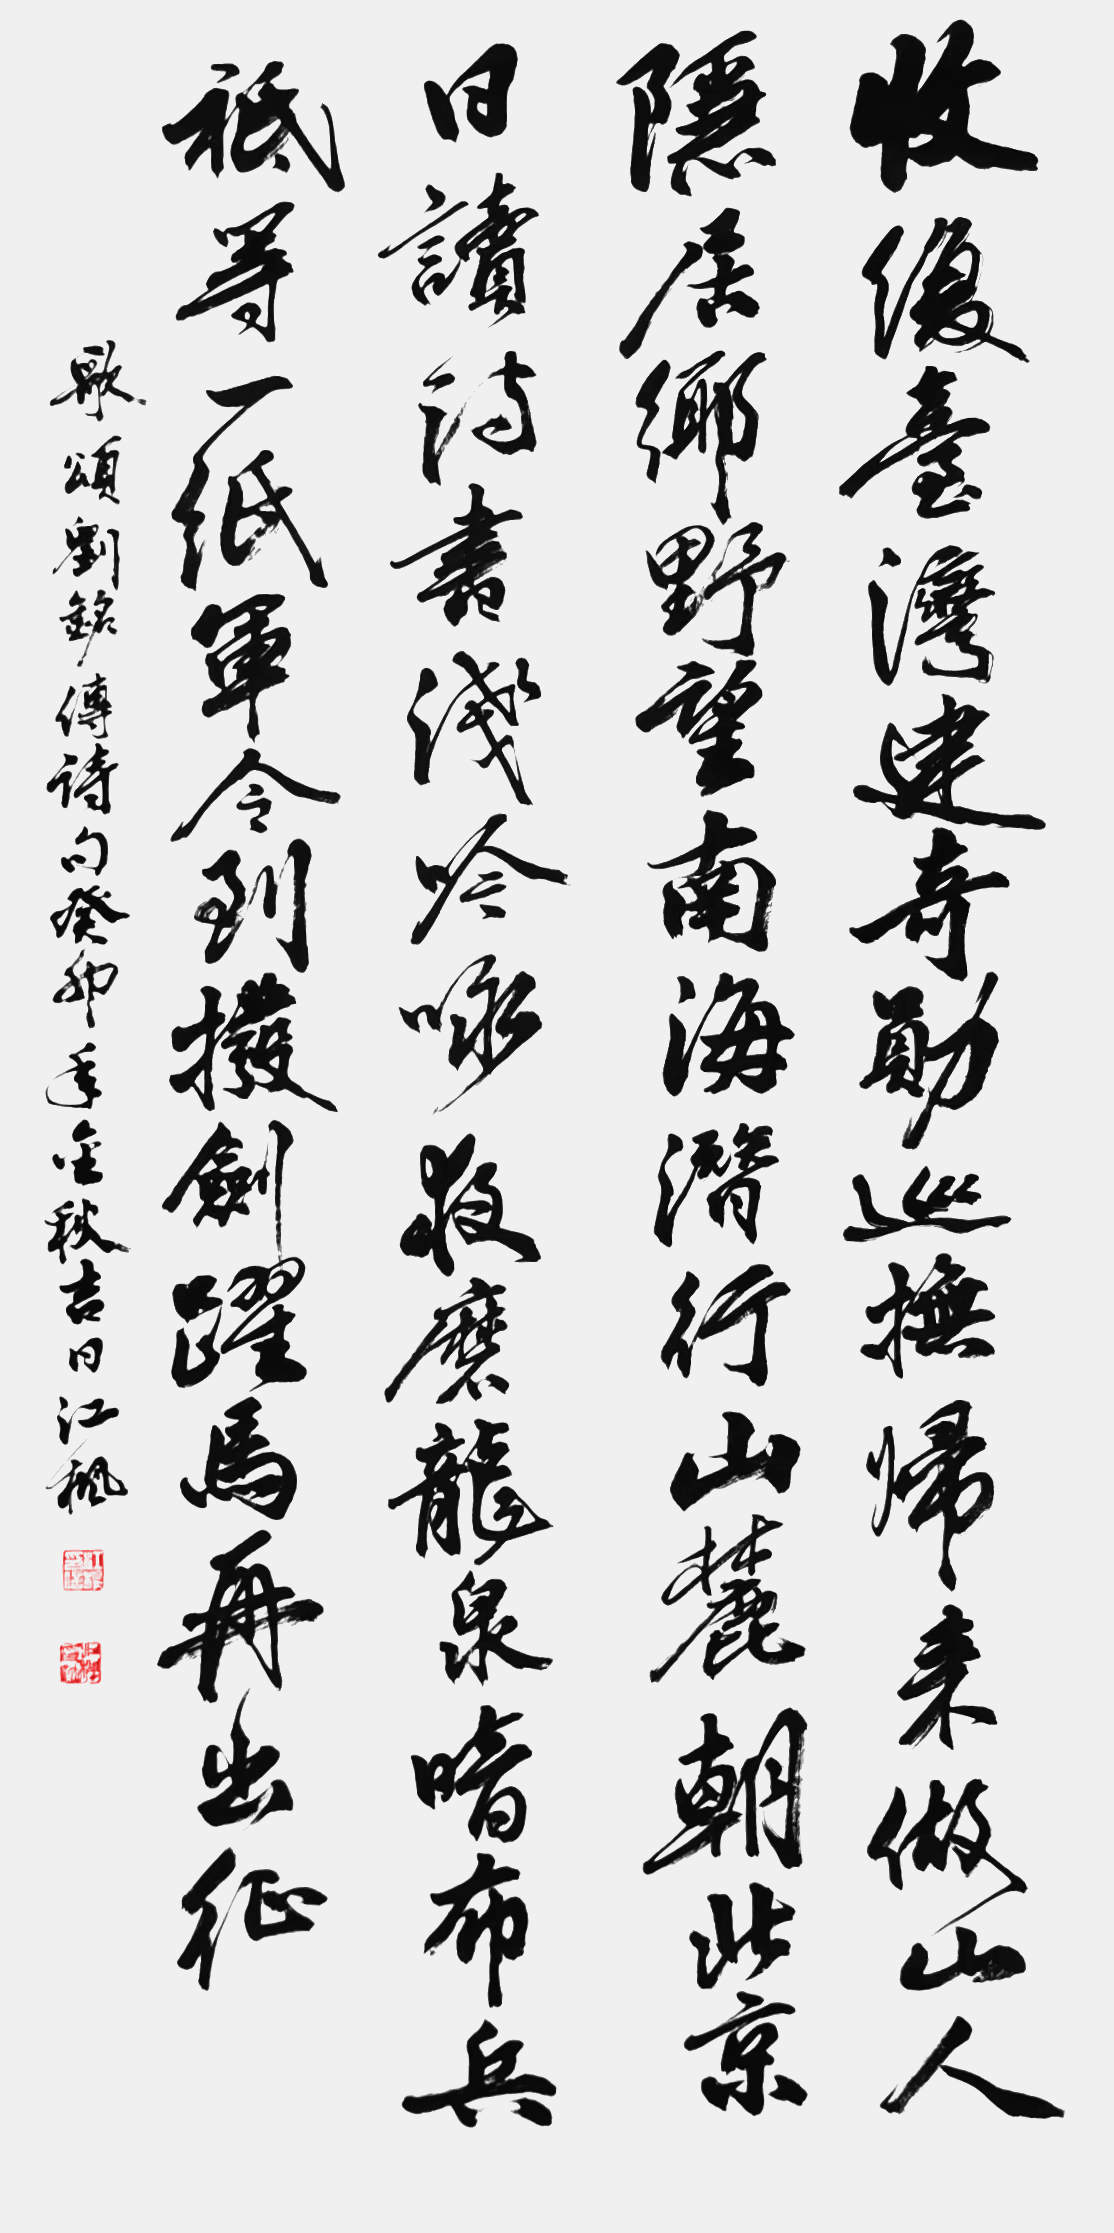 收復臺灣建奇勛巡撫歸来做山人
隱居鄉野望南海潛行山麓朝北京
日讀詩書淺吟咏夜磨龍泉暗布兵
祗等一紙軍令到撥劍躍馬再出征
歌頌劉銘傳詩句癸卯年金秋吉日江楓